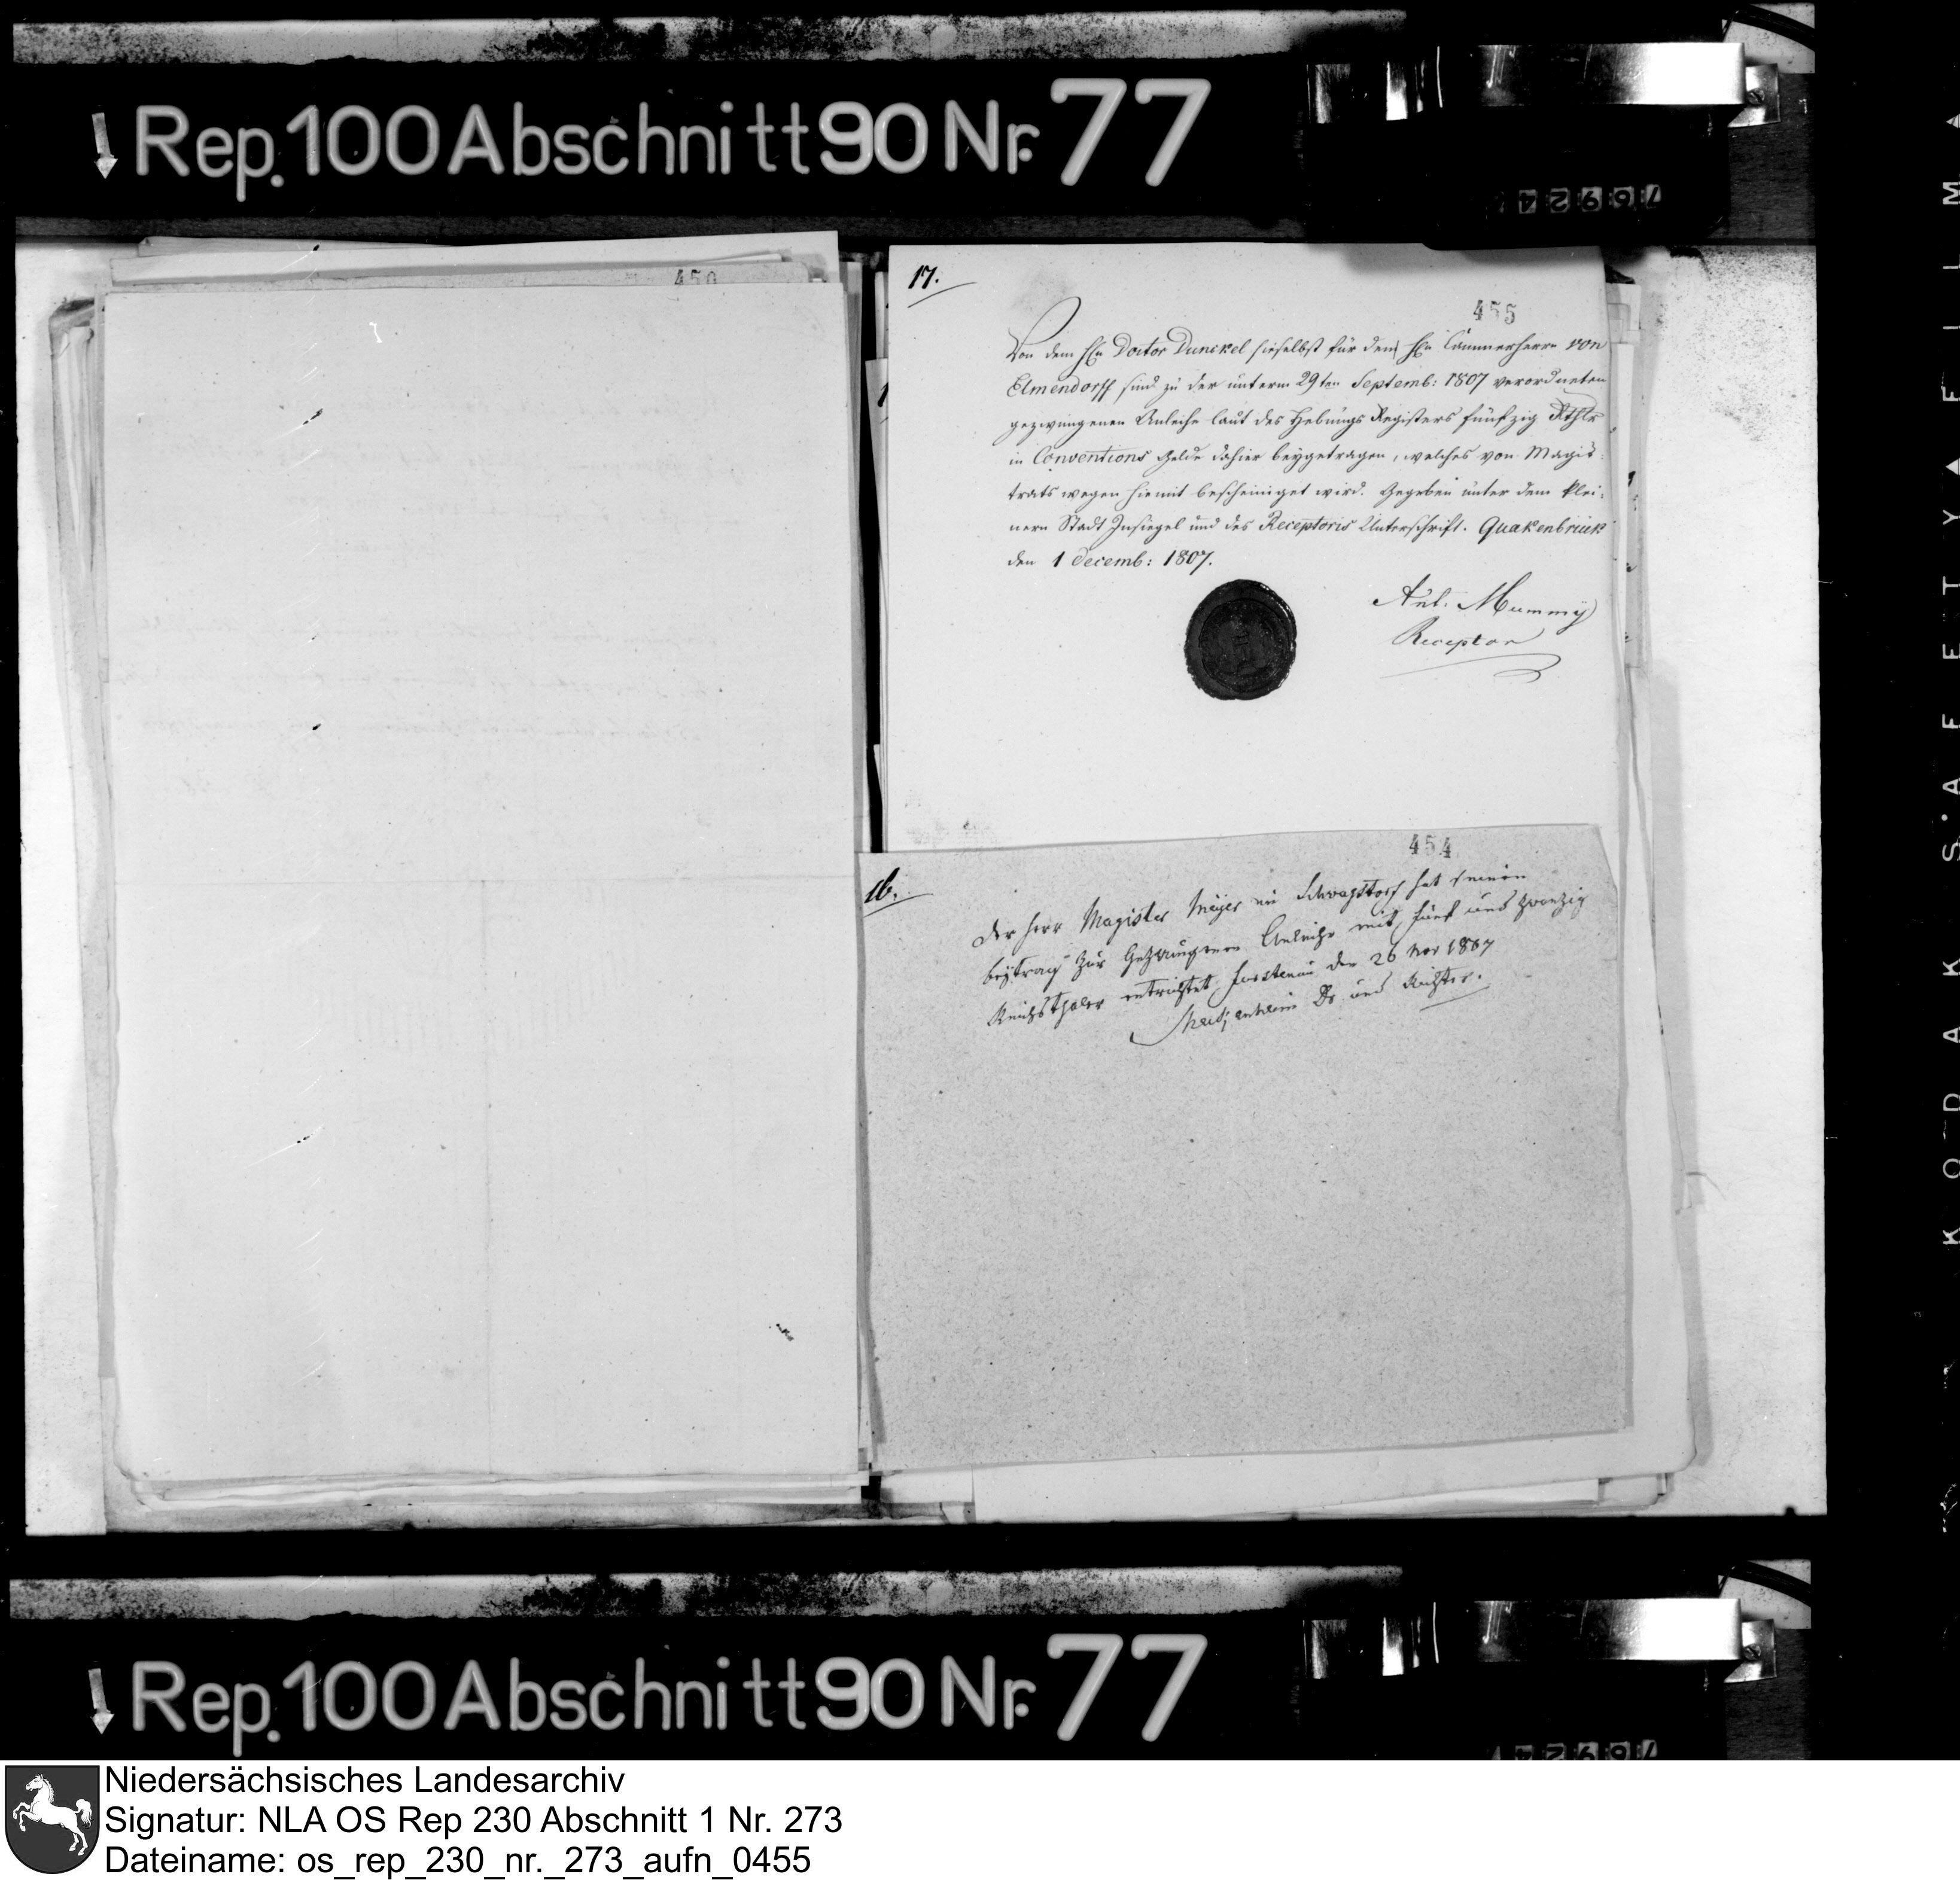 Rep. 100 Abschnitt 90 Nr. 77
76924
450
17.
455
Von dem Hn Doctor Dunckel hieselbst für den Hn Cammerherrn von
Elmendorff sind zu der unterm 29ten Septemb: 1807 verordneten
gezwungenen Anleihe laut des Hebungs Registers fünfzig Rthlr
in Conventions Gelde dahier beygetragen, welches von Magis-
trats wegen hiemit bescheiniget wird. Gegeben unter dem klei-
nern Stadt Insiegel und des Receptoris Unterschrift. Quakenbrück
den 1 Decemb: 1807.
Ant. Mummy
Receptor
454
16.
Der Herr Magister Meyer in Schwagstorf hat seinen
beytrag zur Gezwungenen Anleihe mit fünf und zwanzig
Reichsthaler entrichtet, Furstenau den 26 Nov 1807
Dr und Richter.
KODAK SAFETY FILM
Rep. 100 Abschnitt 90 Nr. 77
76924
Niedersächsisches Landesarchiv
Signatur: NLA OS Rep 230 Abschnitt 1 Nr. 273
Dateiname: os_rep_230_nr._273_aufn_0455